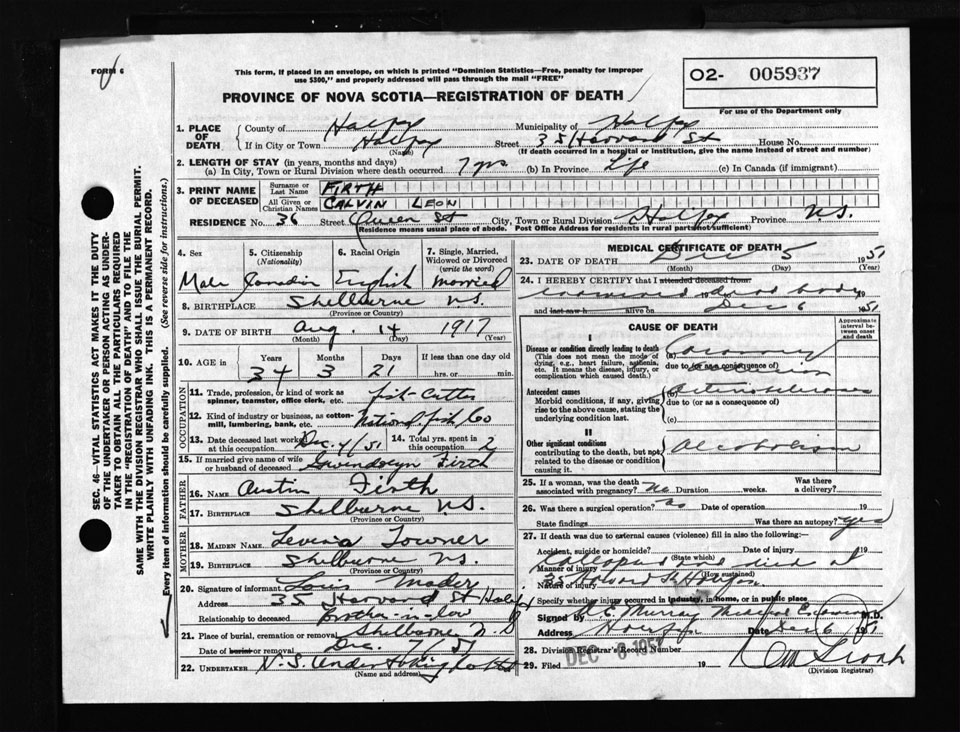 FORM 6
This form, if placed in an envelope, on which is printed "Dominion Statistics—Free, penalty for improper
use $300," and properly addressed will pass through the mail "FREE"
O2- 005937
PROVINCE OF NOVA SCOTIA—REGISTRATION OF DEATH
For use of the Department only
1. PLACE OF DEATH
County of Halifax Municipality of Halifax
If in City or Town Halifax Street 35 Harvard St House No.
(Name) (If death occurred in a hospital or institution, give the name instead of street and number)
2. LENGTH OF STAY (in years, months and days)
(a) In City, Town or Rural Division where death occurred 7 yrs (b) In Province Life (c) In Canada (if immigrant)
3. PRINT NAME OF DECEASED
Surname or Last Name FIRTH
All Given or Christian Names CALVIN LEON
RESIDENCE No. 36 Street Queen St City, Town or Rural Division Halifax Province N.S.
(Residence means usual place of abode. Post Office Address for residents in rural parts not sufficient)
4. Sex
Male
5. Citizenship (Nationality)
Canadian
6. Racial Origin
English
7. Single, Married, Widowed or Divorced (write the word)
Married
8. BIRTHPLACE Shelburne N.S.
(Province or Country)
9. DATE OF BIRTH Aug. 14 1917
(Month) (Day) (Year)
10. AGE in Years Months Days If less than one day old
34 3 21 hrs. or min.
OCCUPATION
11. Trade, profession, or kind of work as
spinner, teamster, office clerk, etc. fish-cutter
12. Kind of industry or business, as cotton-
mill, lumbering, bank, etc. National fish Co
13. Date deceased last worked at this occupation Dec. 4/51
14. Total yrs. spent in this occupation 2
15. If married give name of wife
or husband of deceased Gwendolyn Firth
FATHER
16. NAME Austin Firth
17. BIRTHPLACE Shelburne N.S.
(Province or Country)
MOTHER
18. MAIDEN NAME Towner
19. BIRTHPLACE Shelburne N.S.
(Province or Country)
20. Signature of informant Louis Mader
Address 35 Harvard St Halifax
Relationship to deceased Brother-in-law
21. Place of burial, cremation or removal Shelburne N.S
Date of burial or removal Dec. 7/51
22. UNDERTAKER N.S. Undertaking Co Ltd
(Name and address)
MEDICAL CERTIFICATE OF DEATH
23. DATE OF DEATH Dec 5 1951
(Month) (Day) (Year)
24. I HEREBY CERTIFY that I attended deceased from
dead body 19
and last saw h alive on Dec 6 1951
CAUSE OF DEATH
Approximate interval between onset and death
I
Disease or condition directly leading to death
(This does not mean the mode of
dying, e.g., heart failure, asthenia,
etc. It means the disease, injury, or
complication which caused death.)
(a) Coronary
due to (or as a consequence of)
Antecedent causes
Morbid conditions, if any, giving
rise to the above cause, stating the
underlying condition last.
(b) Arteriosclerosis
due to (or as a consequence of)
II
Other significant conditions
contributing to the death, but not
related to the disease or condition
causing it.
Alcoholism
25. If a woman, was the death associated with pregnancy? No Duration weeks. Was there a delivery?
26. Was there a surgical operation? no Date of operation 19
State findings Was there an autopsy? yes
27. If death was due to external causes (violence) fill in also the following:—
Accident, suicide or homicide? Date of injury 19
(State which)
Manner of injury and died at
(How sustained)
Nature of injury 35 Harvard St Halifax
Specify whether injury occurred in industry, in home, or in public place
Signed by Murray Medical Examiner M.D.
Address Halifax Date Dec 6 1951
28. Division Registrar's Record Number
29. Filed DEC 6 1951 19
(Division Registrar)
SEC. 46—VITAL STATISTICS ACT MAKES IT THE DUTY
OF THE UNDERTAKER OR PERSON ACTING AS UNDER-
TAKER TO OBTAIN ALL THE PARTICULARS REQUIRED
IN THE "REGISTRATION OF DEATH" AND TO FILE THE
SAME WITH THE DIVISION REGISTRAR WHO SHALL ISSUE THE BURIAL PERMIT.
WRITE PLAINLY WITH UNFADING INK. THIS IS A PERMANENT RECORD.
Every item of information should be carefully supplied. (See reverse side for instructions.)